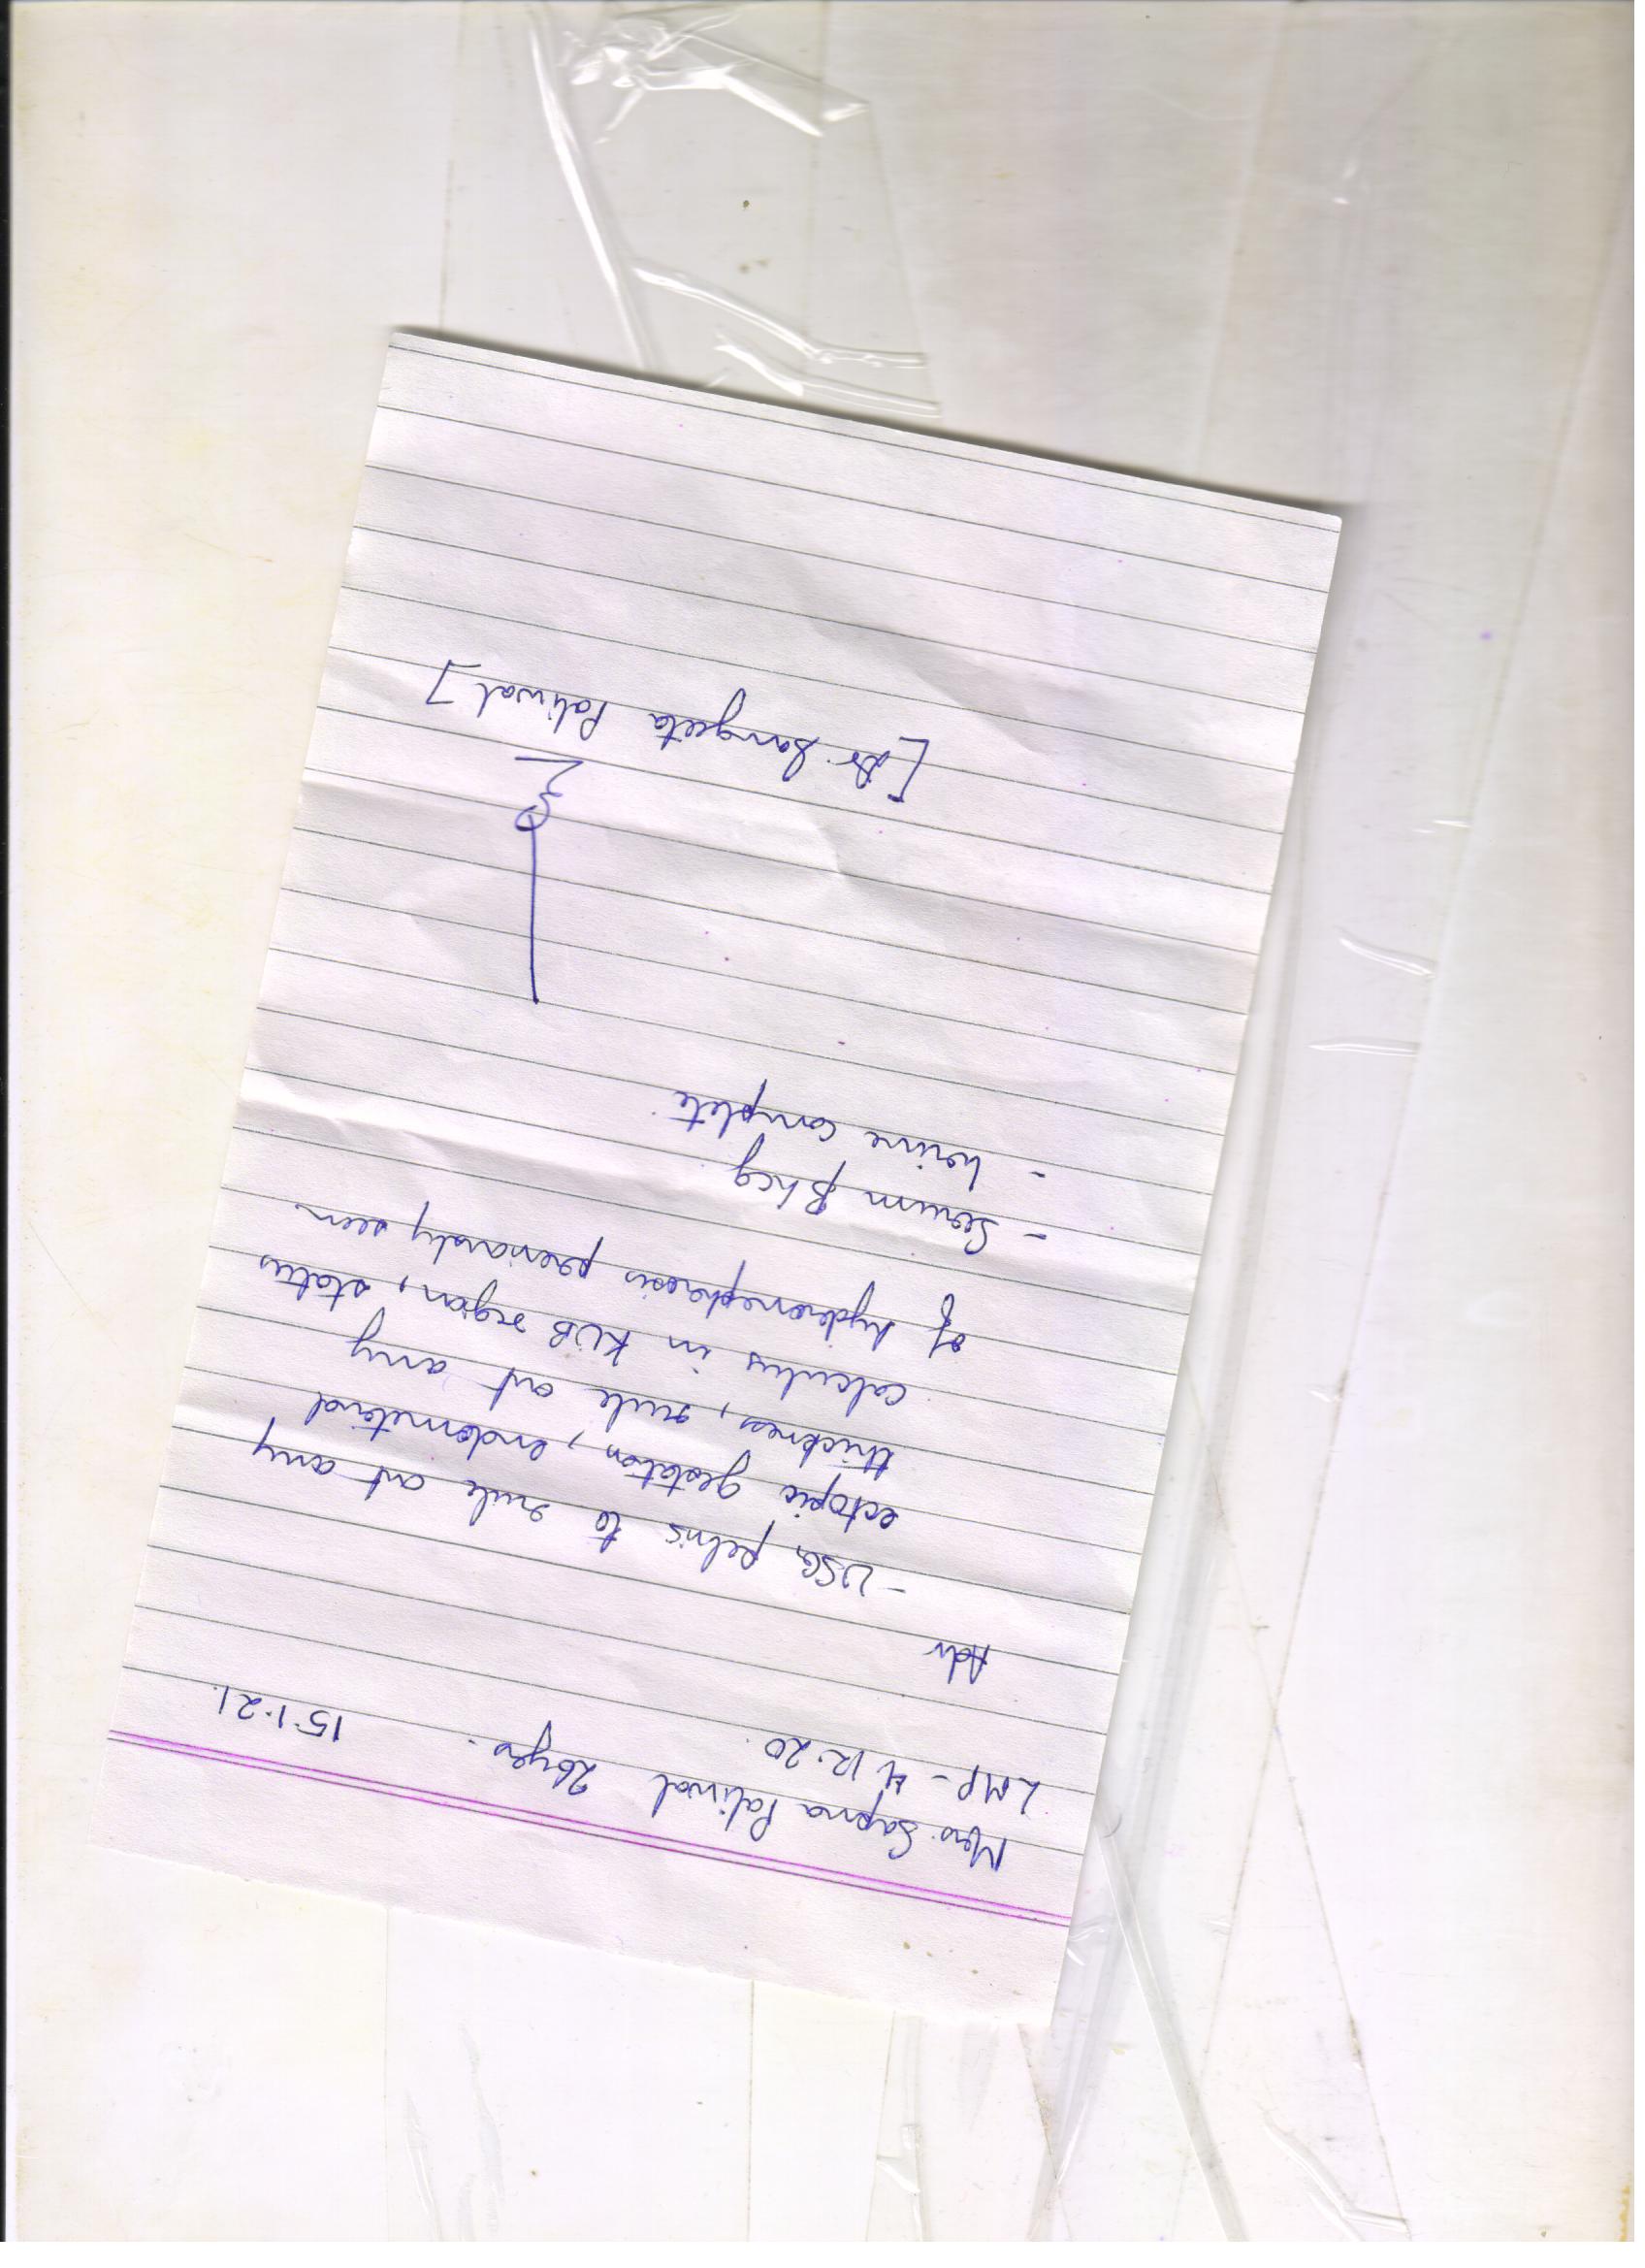 Mrs. Sapna Paliwal 26yrs. 15.1.21.
LMP - 12.20.
Adv
- USG pelvis to rule out any
ectopic gestation, endometrial
thickness, rule out any
calculus in KUB region, status
of hydronephrosis previously seen.
- Serum βhcg
- Urine complete.
[Dr. Sangeeta Paliwal]